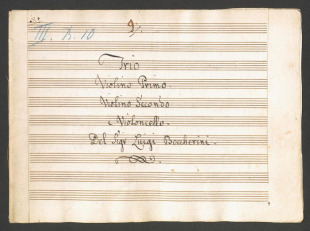 III. h. 10
Trio
Violino Primo.
Violino Secondo
e Violoncello.
Del Sigr Luigi Bocherini.